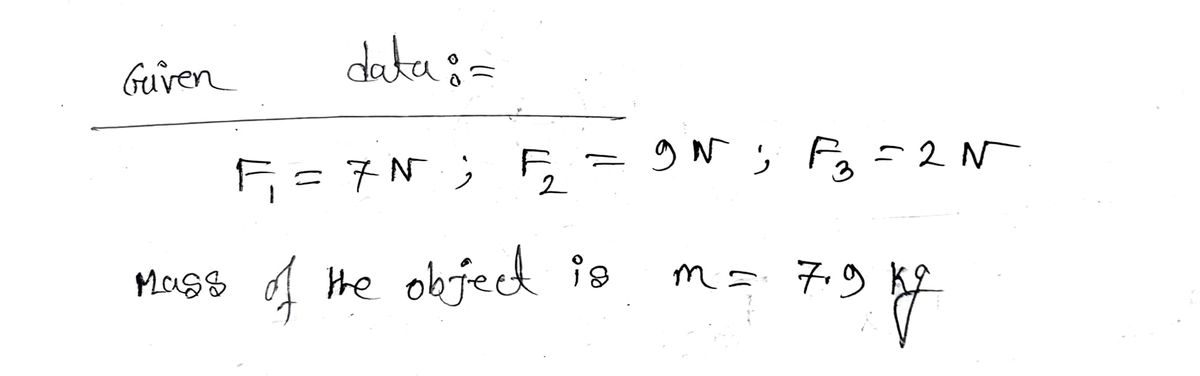 Given data:=
F₁ = 7 N ; F₂ = 9 N ; F₃ = 2 N
Mass of the object is m = 7.9 kg